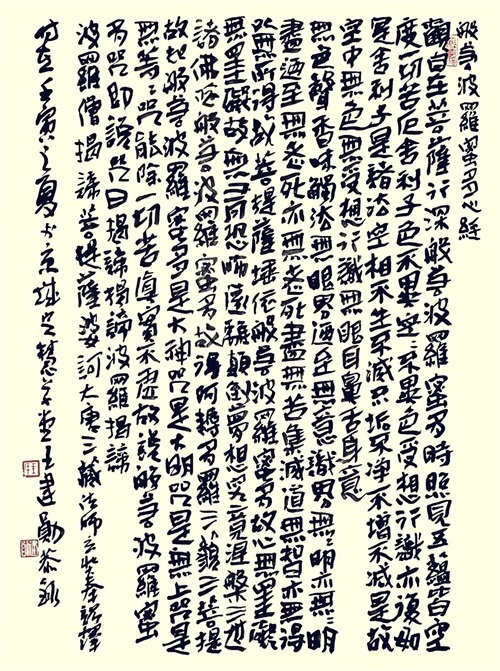 般若波羅蜜多心經
觀自在菩薩行深般若波羅蜜多時照見五蘊皆空
度一切苦厄舍利子色不異空空不異色受想行識亦復如
是舍利子是諸法空相不生不滅不垢不淨不增不減是故
空中無色無受想行識無眼耳鼻舌身意
無色聲香味觸法無眼界迺至無意識界無無明亦無無明
盡迺至無老死亦無老死盡無苦集滅道無智亦無得
以無所得故菩提薩埵依般若波羅蜜多故心無罣礙
無罣礙故無有恐怖遠離顛倒夢想究竟涅槃三世
諸佛依般若波羅蜜多故得阿耨多羅三藐三菩提
故知般若波羅蜜多是大神咒是大明咒是無上咒是
無等等咒能除一切苦真實不虛故說般若波羅蜜
多咒即說咒曰揭諦揭諦波羅揭諦
波羅僧揭諦菩提薩婆訶大唐三藏法師玄奘奉詔譯
時在壬寅之夏於京城慧草堂王建勛恭録